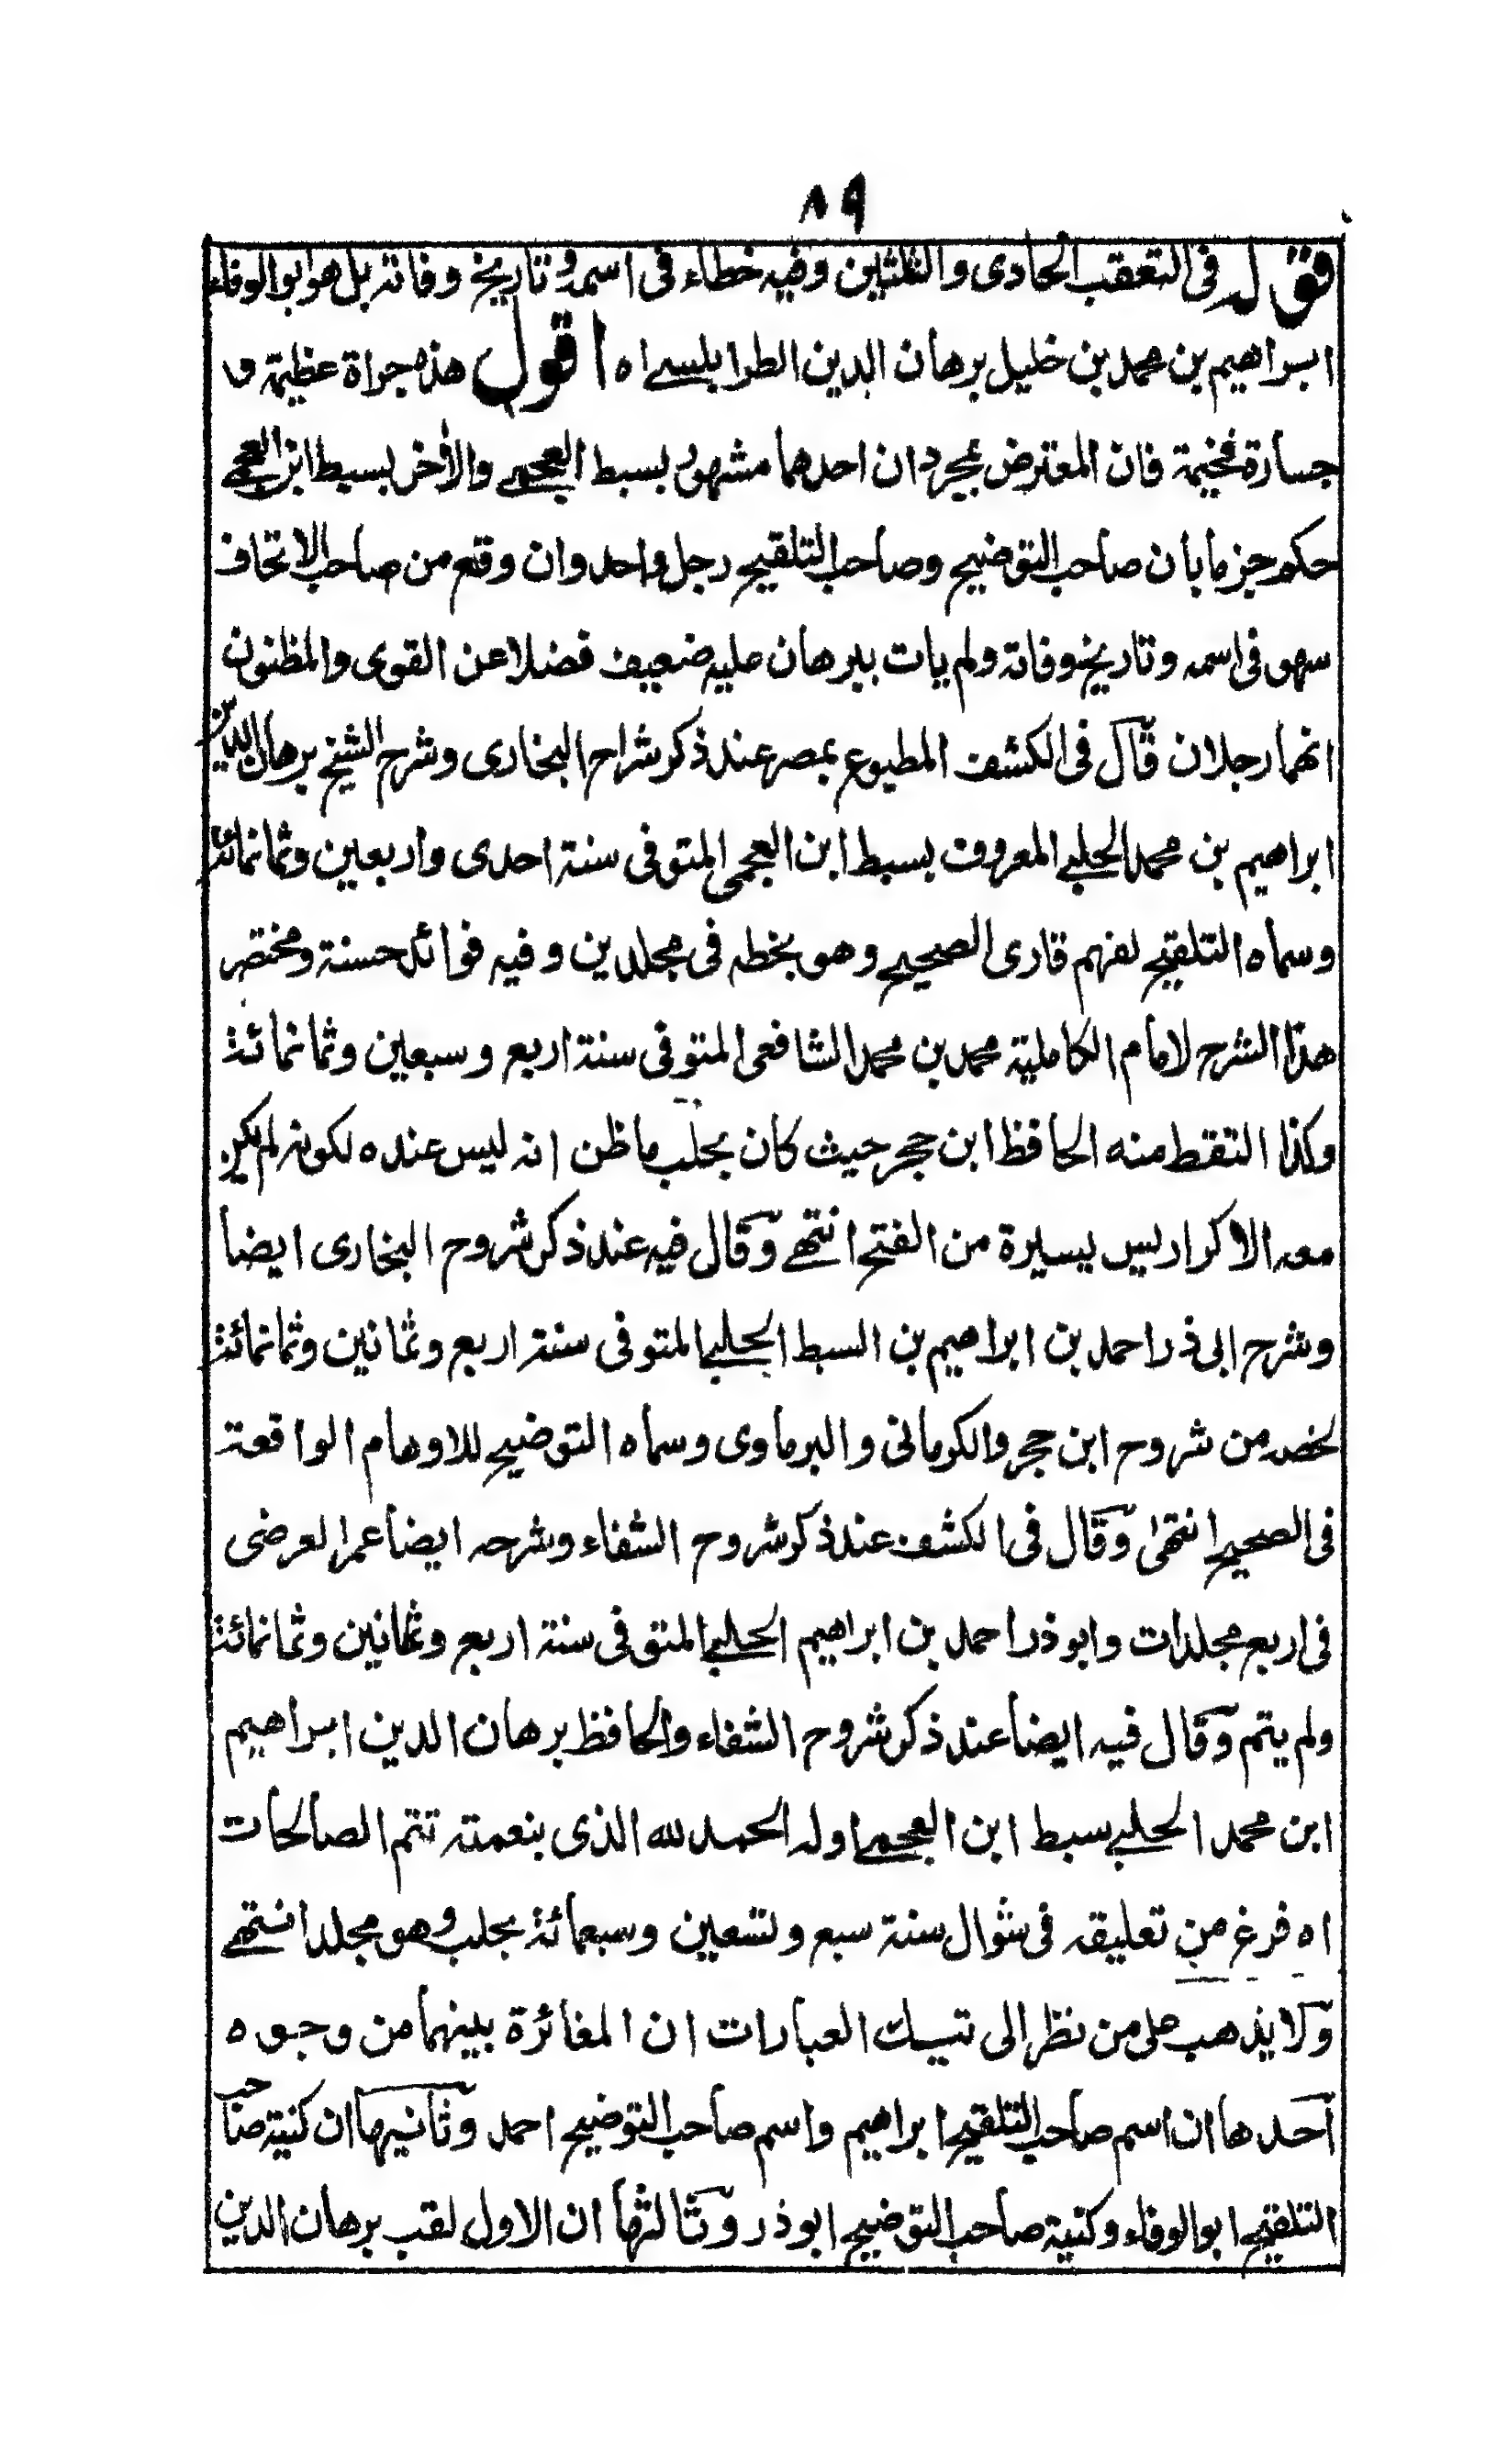 ٨٩
قوله فى التعقب الحادى والثلثين وفيه خطاء فى اسمه وتاريخ وفاته بل هو ابو الوفاء
ابراهيم بن محمد بن خليل برهان الدين الطرابلسے اه اقول هذه جراة عظيمة و
جسارة فخيمة فان المعترض بمجرد ان احدهما مشهور بسبط العجمے والأخر بسبط ابن العجمے
حكم جزما بان صاحب التوضيح وصاحب التلقيح رجل واحد وان وقع من صاحب الاتحاف
سهو فى اسمه وتاريخ وفاته ولم يات ببرهان عليه ضعيف فضلا عن القوى والمظنون
انهما رجلان قال فى الكشف المطبوع بمصر عند ذكر شراح البخارى وشرح الشيخ برهان الدين
ابراهيم بن محمد الحلبے المعروف بسبط ابن العجمى المتوفى سنة احدى واربعين وثمانمائة
وسماه التلقيح لفهم قارى الصحيح وهو بخطه فى مجلدين وفيه فوائد حسنة ومختصر
هذا الشرح لامام الكاملية محمد بن محمد الشافعى المتوفى سنة اربع وسبعين وثمانمائة
وكذا التقط منه الحافظ ابن حجر حيث كان بحلب ما ظن انه ليس عنده لكونه لم يكن
معه الا كراريس يسيرة من الفتح انتهے وقال فيه عند ذكر شروح البخارى ايضا
وشرح ابى ذر احمد بن ابراهيم بن السبط الحلبے المتوفى سنة اربع وثمانين وثمانمائة
لخصه من شروح ابن حجر والكرمانى والبرماوى وسماه التوضيح للاوهام الواقعة
فى الصحيح انتهى وقال فى الكشف عند ذكر شروح الشفاء وشرحه ايضا عمر العرضى
فى اربع مجلدات وابو ذر احمد بن ابراهيم الحلبے المتوفى سنة اربع وثمانين وثمانمائة
ولم يتم وقال فيه ايضا عند ذكر شروح الشفاء والحافظ برهان الدين ابراهيم
ابن محمد الحلبے سبط ابن العجمے اوله الحمد لله الذى بنعمته تتم الصالحات
اه فرغ من تعليقه فى شوال سنة سبع وتسعين وسبعمائة بحلب وهو مجلد انتهے
ولا يذهب على من نظر الى تيسك العبارات ان المغائرة بينهما من وجوه
احدها ان اسم صاحب التلقيح ابراهيم واسم صاحب التوضيح احمد وثانيها ان كنية صاحب
التلقيح ابو الوفاء وكنية صاحب التوضيح ابو ذر وثالثها ان الاول لقب برهان الدين